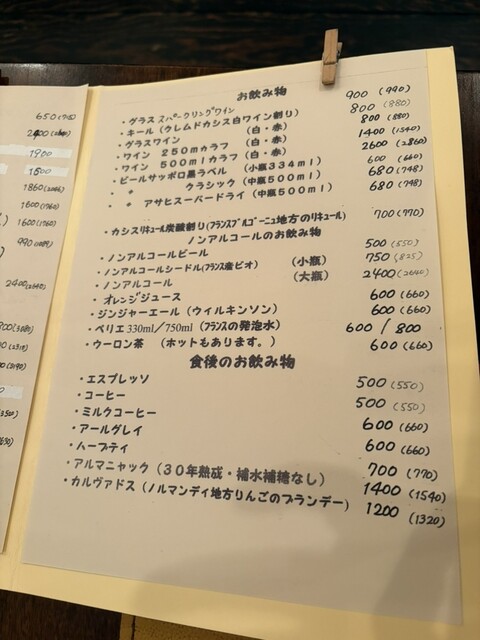 650 (715)
1900
1500
2400
お飲み物
・グラススパークリングワイン 900 (990)
・キール(クレムドカシス白ワイン割り) 800 (880)
・グラスワイン (白・赤) 800 (880)
・ワイン 250mカラフ (白・赤) 1400 (1540)
・ワイン 500mlカラフ (白・赤) 2600 (2860)
・ビールサッポロ黒ラベル (小瓶334ml) 600 (660)
・ 〃 クラシック (中瓶500ml) 680 (748)
・ 〃 アサヒスーパードライ (中瓶500ml) 680 (748)
・カシスリキュール炭酸割り(フランスブルゴーニュ地方のリキュール) 700 (770)
ノンアルコールのお飲み物
・ノンアルコールビール 500 (550)
・ノンアルコールシードル(フランス産ビオ) (小瓶) 750 (825)
・ノンアルコール (大瓶) 2400 (2640)
・オレンジジュース 600 (660)
・ジンジャーエール(ウィルキンソン) 600 (660)
・ペリエ330ml/750ml (フランスの発泡水) 600 / 800
・ウーロン茶 (ホットもあります。) 600 (660)
食後のお飲み物
・エスプレッソ 500 (550)
・コーヒー 500 (550)
・ミルクコーヒー 600 (660)
・アールグレイ 600 (660)
・ハーブティ 700 (770)
・アルマニャック(30年熟成・補水補糖なし) 1400 (1540)
・カルヴァドス(ノルマンディ地方りんごのブランデー) 1200 (1320)